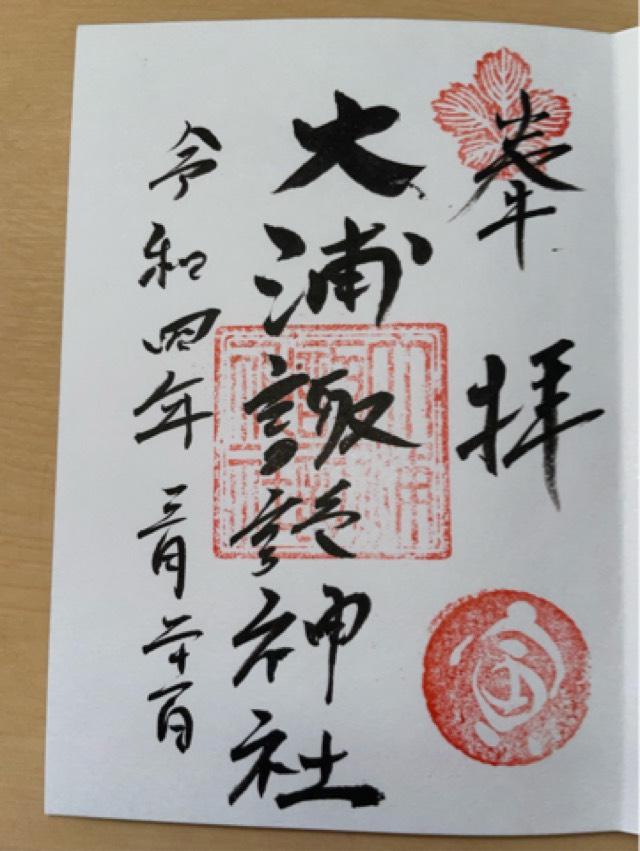 奉拝
大浦諏訪神社
令和四年三月二十一日